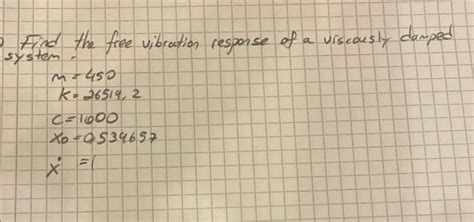 Find the free vibration response of a viscously damped
system.
m = 450
k = 26519,2
c = 1000
x0 = 0,534657
ẋ = 1